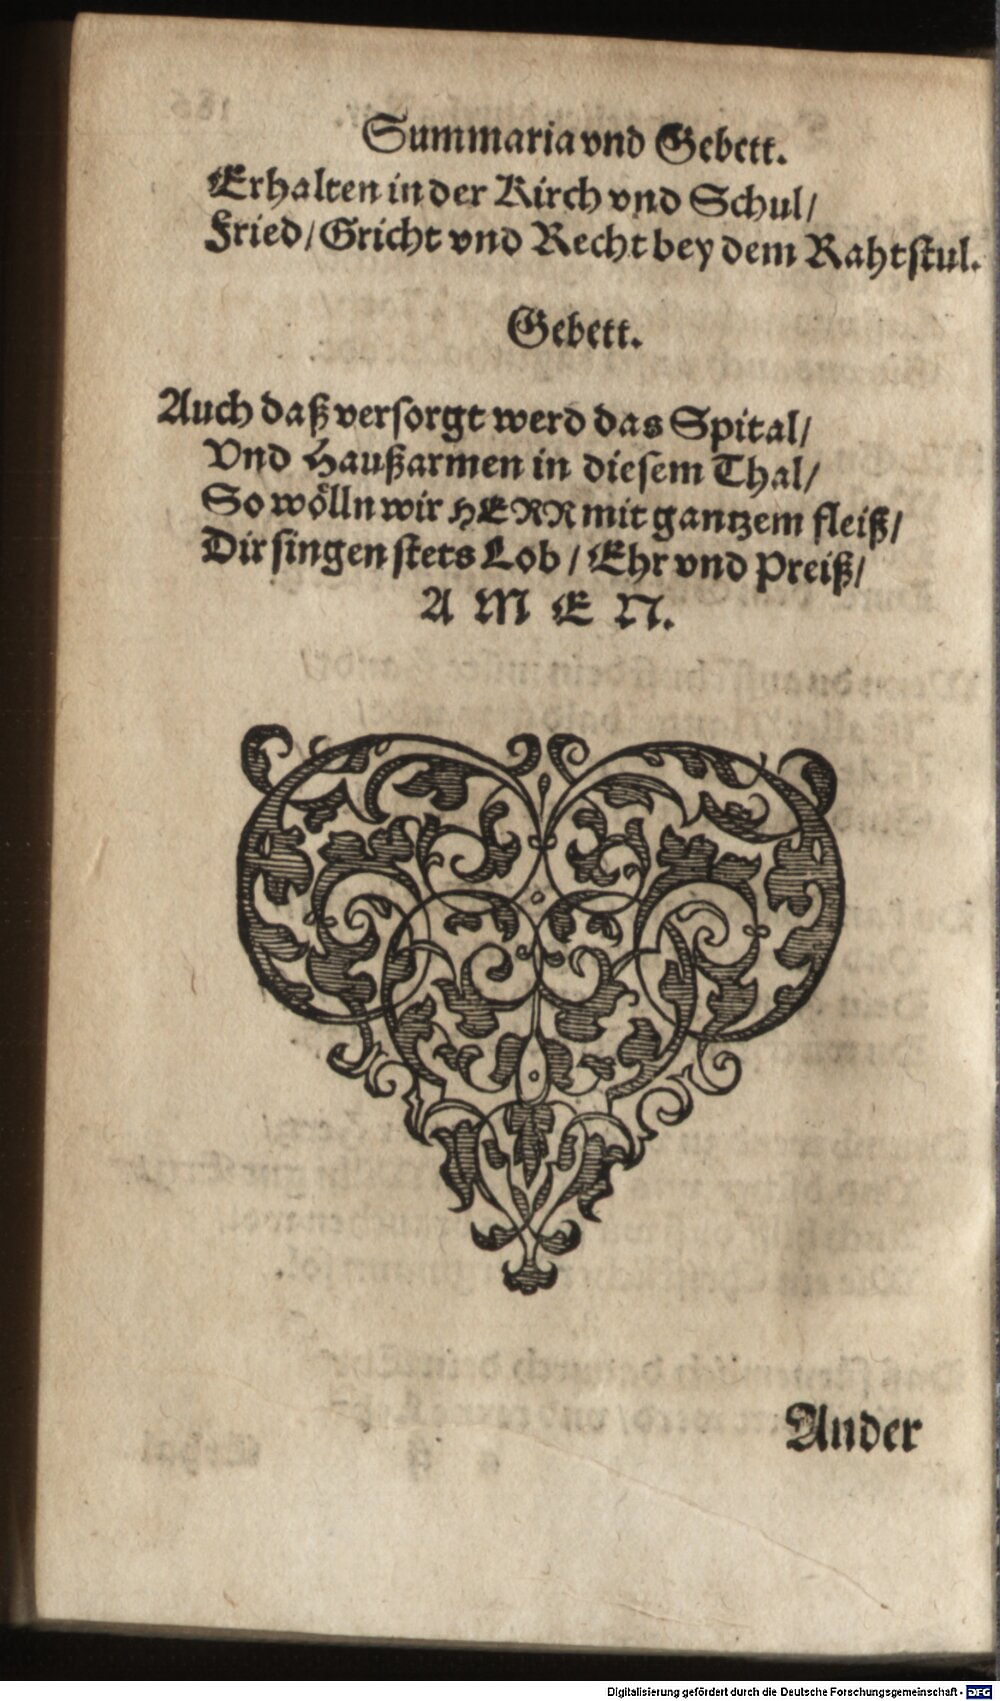 Summaria vnd Gebett.
Erhalten in der Kirch vnd Schul/
Fried/Gricht vnd Recht bey dem Rahtstul.
Gebett.
Auch daß versorgt werd das Spital/
Vnd Haußarmen in diesem Thal/
So wölln wir HERR mit gantzem fleiß/
Dir singen stets Lob / Ehr vnd Preiß/
A M E N.
Ander
Digitalisierung gefördert durch die Deutsche Forschungsgemeinschaft - DFG